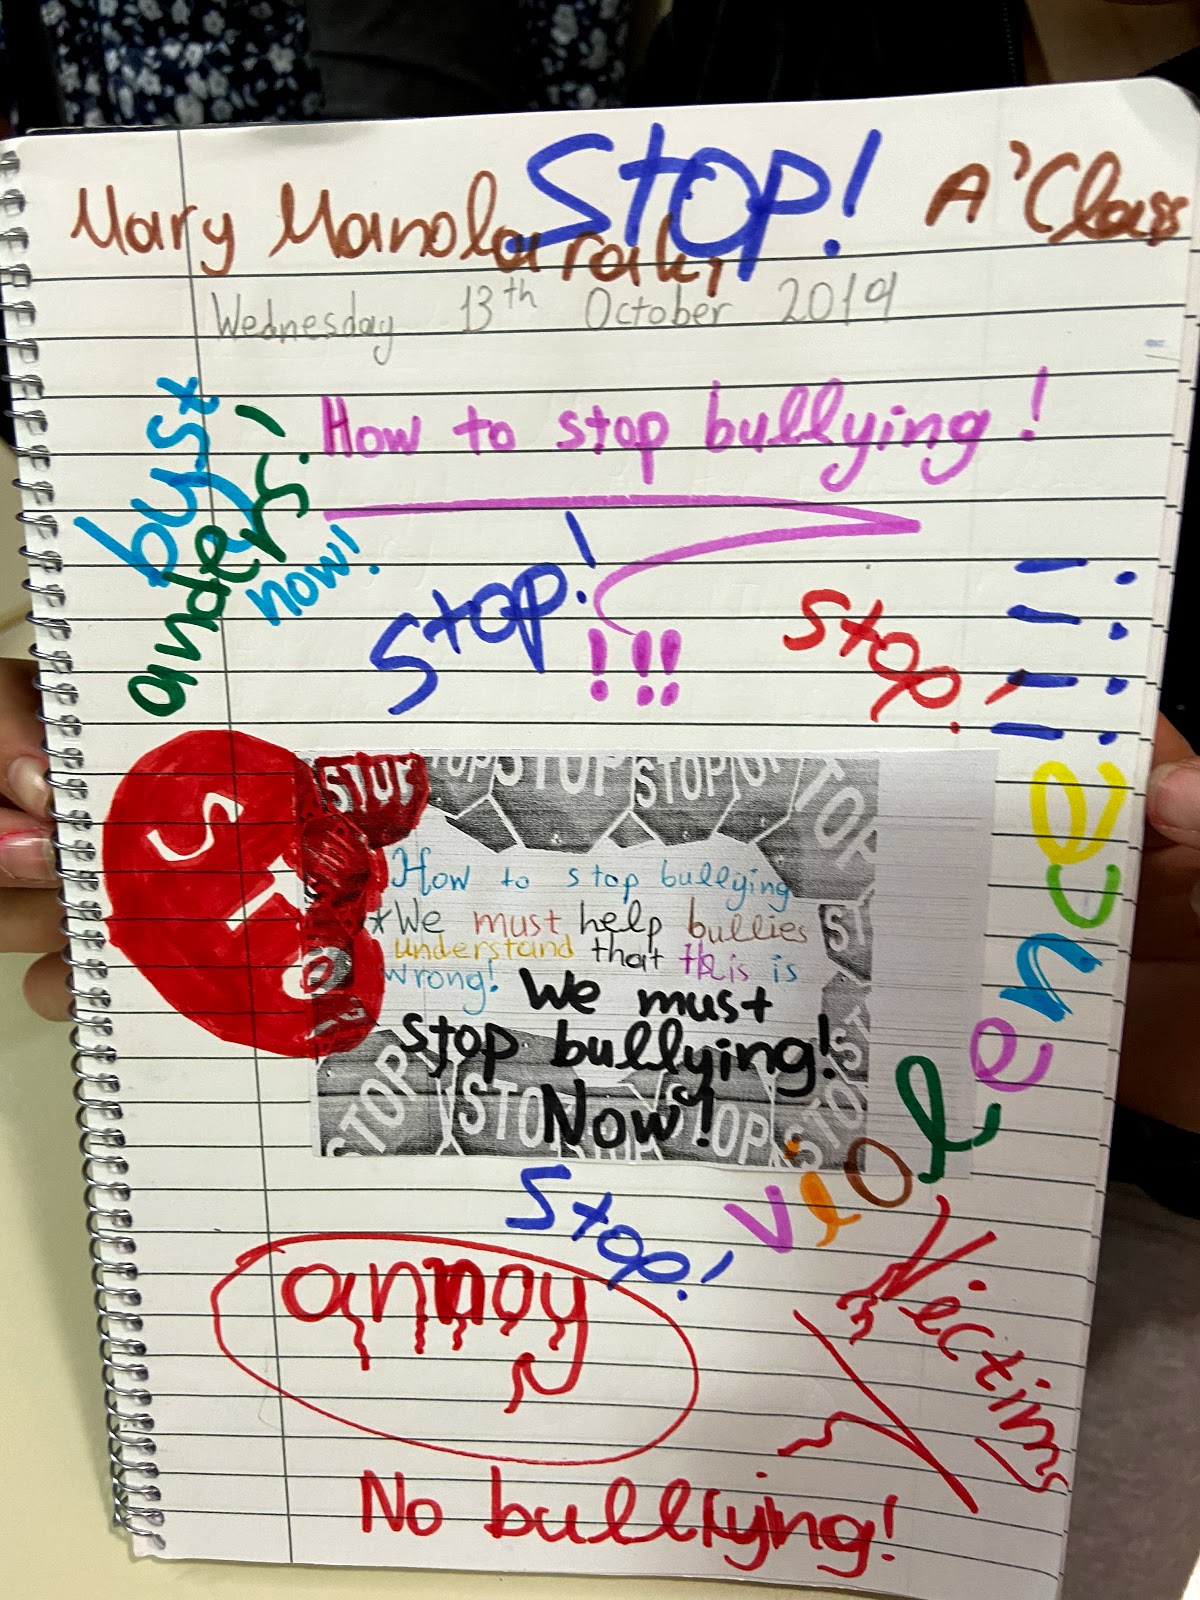 STOP!
Mary Manolarraki
A'Class
Wednesday 13th October 2019
How to stop bullying!
byst
anders!
now!
Stop!
!!!
Stop!
!!!!
STO
STOP
STOP
STOP
STOP
STOP
How to stop bullying
*We must help bullies
understand that this is
wrong!
We must
stop bullying!
Now!
ST
ST
STOP
STO
OP
STO
violence
Stop!
annoy
Victim
No bullying!